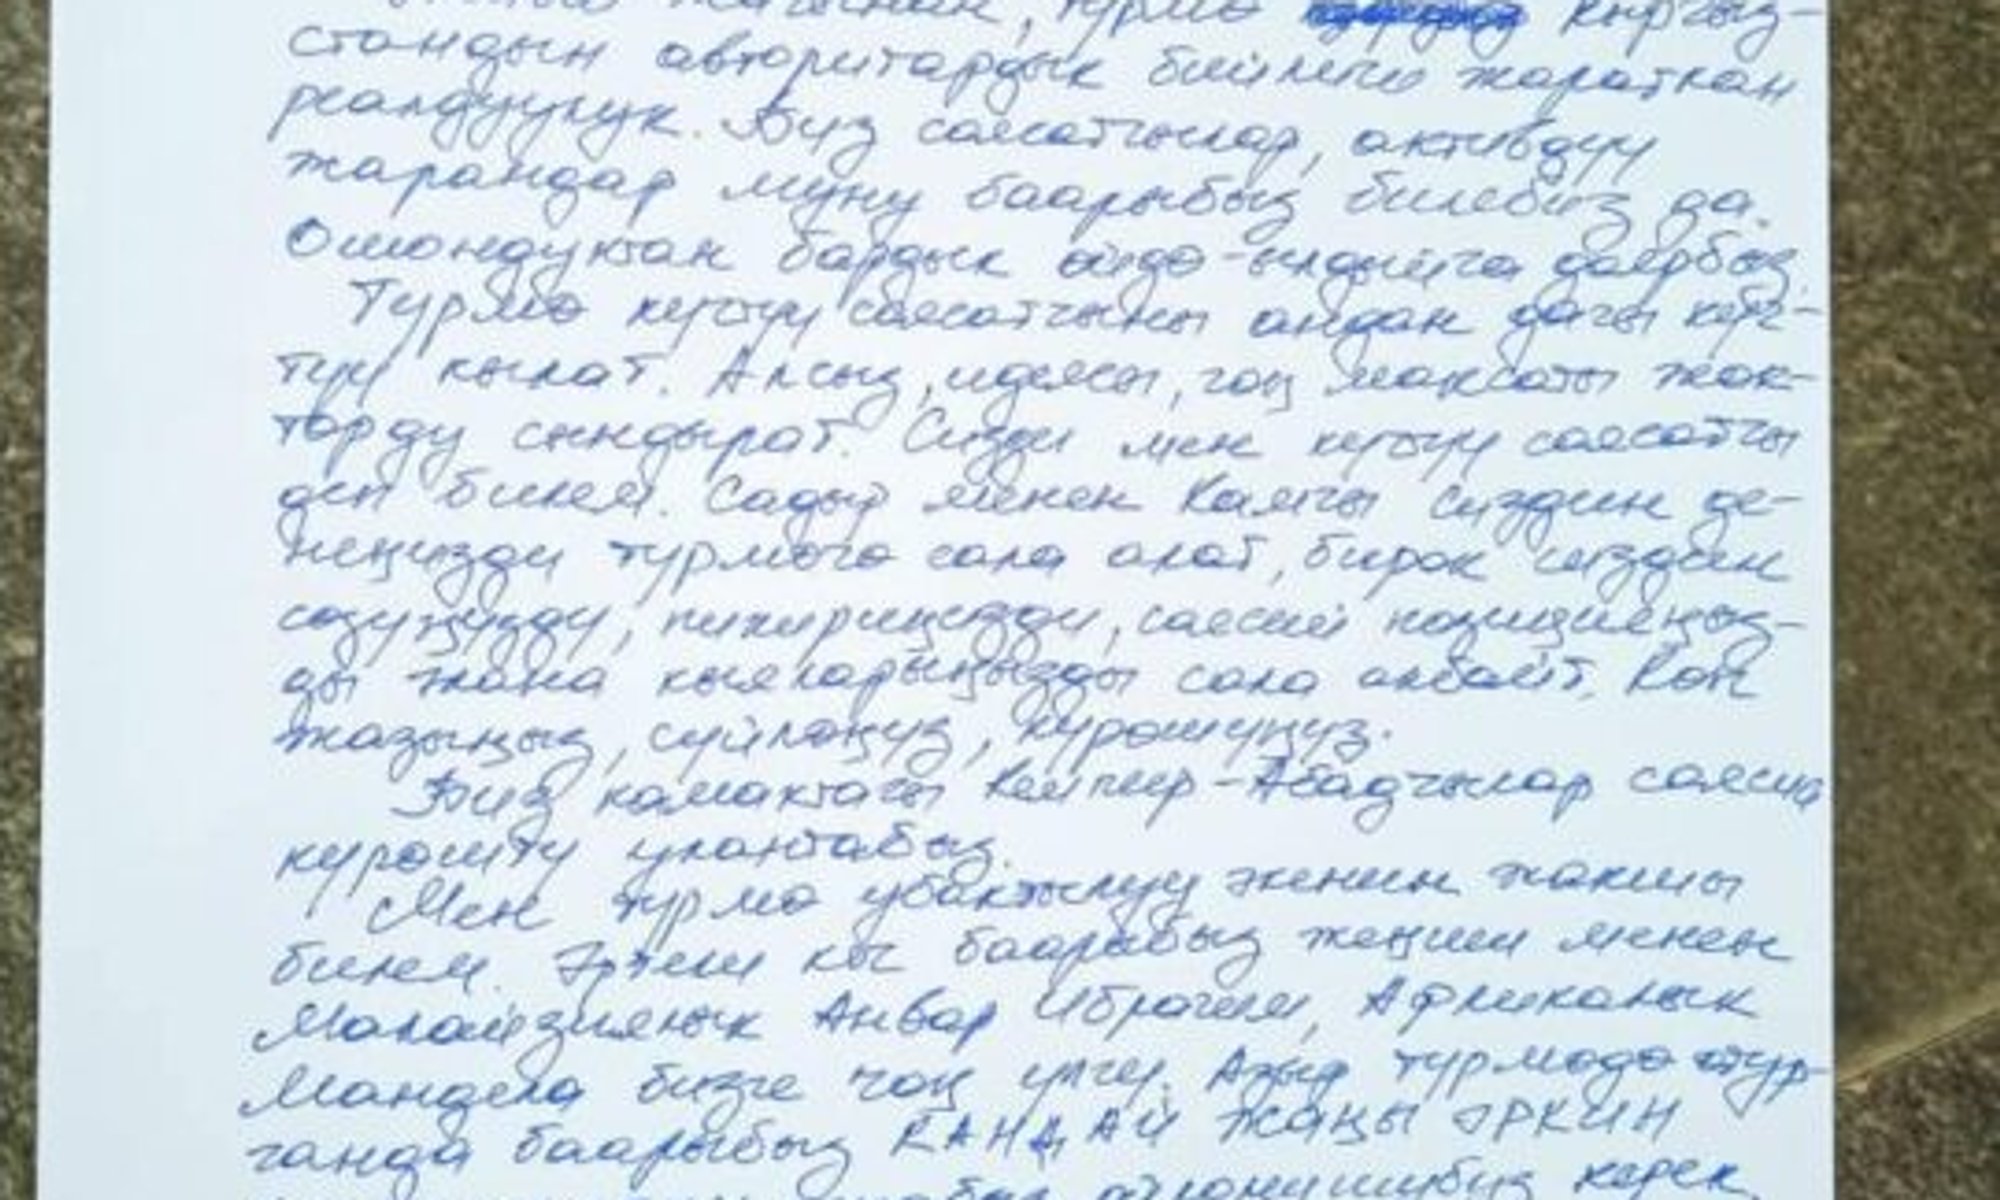 турмө Кыргыз-
стандын авторитардык бийлиги жараткан
реалдуулук. Биз саясатчылар, активдүү
жарандар муну баарыбыз билебиз да.
Ошондуктан бардык өйдө-ылдыйга даярбыз.
Түрмө күчтүү саясатчыны андан дагы күч-
түү кылат. Алсыз, идеясы, чоң максаты жок-
торду сындырат. Сизди мен күчтүү саясатчы
деп билем. Садыр менен Камчы сиздин де-
неңизди түрмөгө сала алат, бирок сиздин
сөзүңүздү, пикириңизди, саясий позицияңыз-
ды жана кыялларыңызды сала албайт. Көп
жазыңыз, сүйлөңүз, күрөшүңүз.
Биз камактагы Кемпир-Абадчылар саясий
күрөштү улантабыз.
Мен түрмө убактылуу экенин жакшы
билем. Эртеңки күн баарыбыз жеңиш менен
Малайзиялык Анвар Ибрагим, Африкалык
Мандела бизге чоң үлгү. Азыр түрмөдө отур-
ганда баарыбыз КАНДАЙ жаңы ЭРКИН
керек